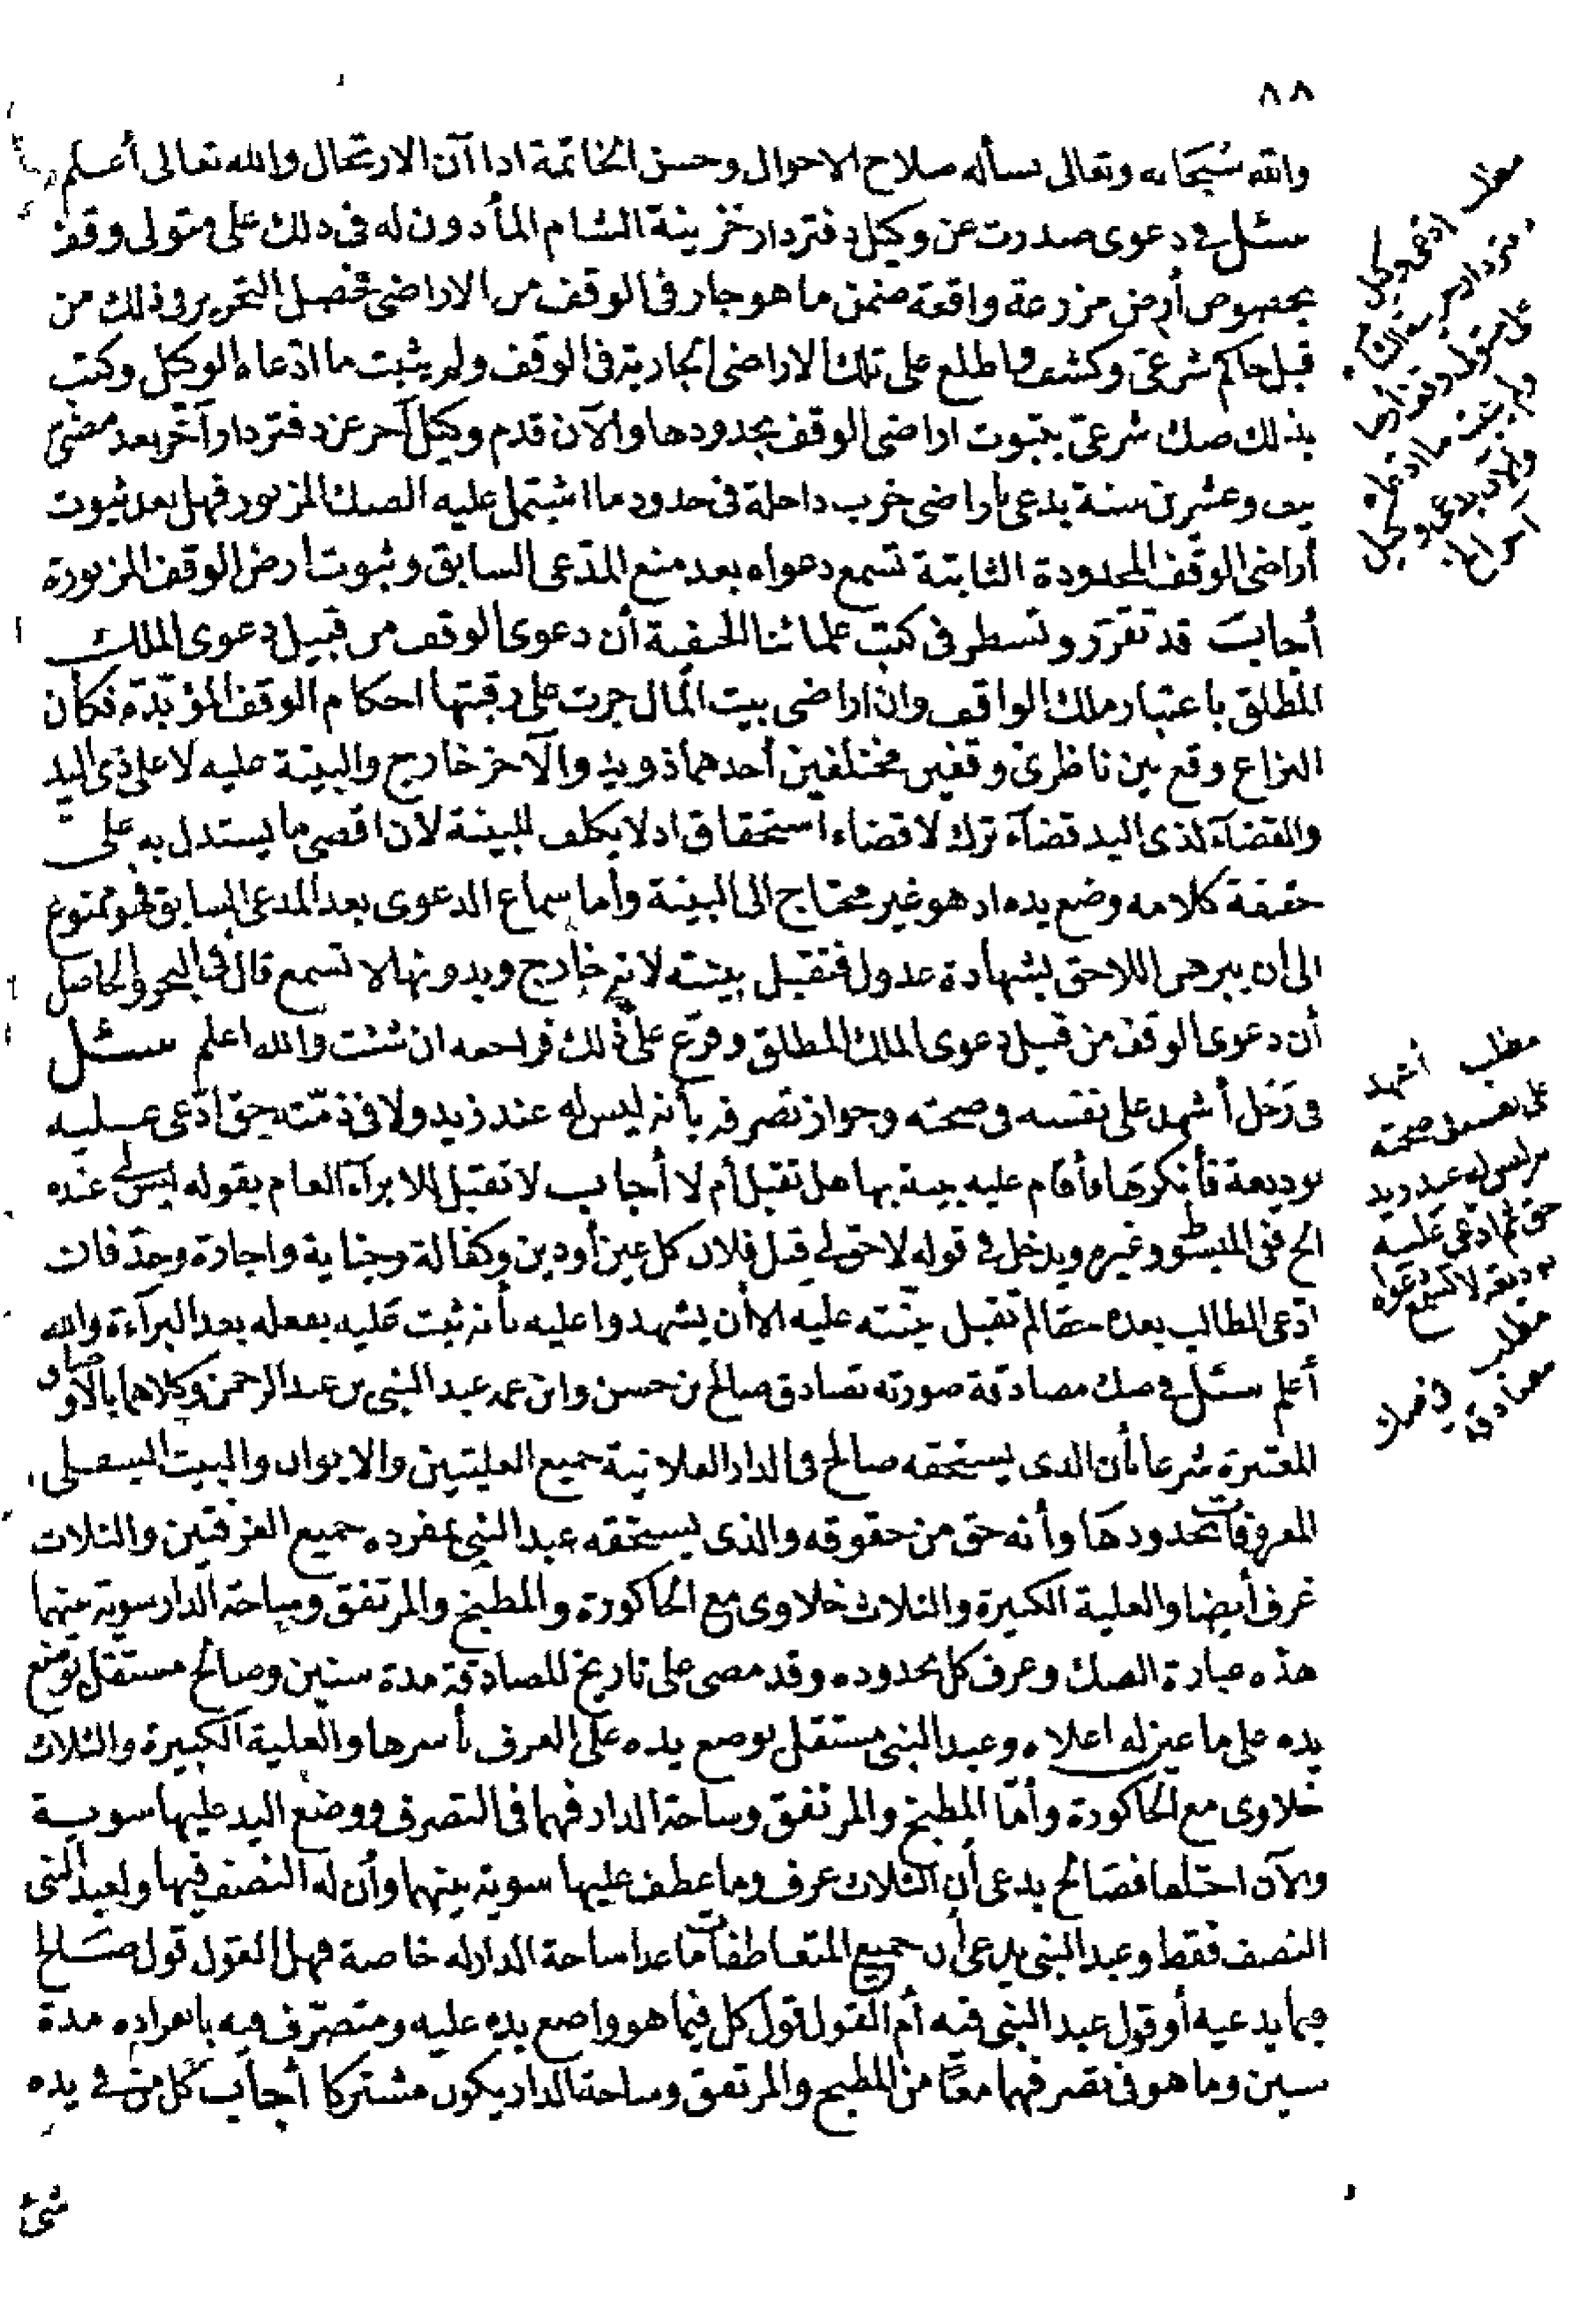 ٨٨
والله سبحانه وتعالى نسأله صلاح الاحوال وحسن الخاتمة اذا آن الارتحال والله تعالى أعلم
سئل في دعوى صدرت عن وكيل دفتردار خزينة الشام المأذون له في ذلك على متولى وقف
بخصوص أرض مزرعة واقعة ضمن ما هو جار في الوقف من الاراضي فحصل التحرير في ذلك من
قبل حاكم شرعي وكشف واطلع على تلك الاراضي الجارية في الوقف ولم يثبت ما ادعاه الوكيل وكتب
بذلك صك شرعي بثبوت اراضي الوقف بحدودها والآن قدم وكيل آخر عن دفتردار آخر بعد مضي
نيف وعشرين سنة يدعي بأراضي خرب داخلة في حدود ما اشتمل عليه الصك المزبور فهل بعد ثبوت
أراضي الوقف المحدودة الثابتة تسمع دعواه بعد منع المدعي السابق وثبوت ارض الوقف المزبورة
أجاب قد تقرر وتسطر في كتب علمائنا الحنفية أن دعوى الوقف من قبيل دعوى الملك
المطلق باعتبار ملك الواقف وان اراضي بيت المال جرت على رقبتها احكام الوقف المؤبدة فكأن
النزاع وقع بين ناظري وقفين مختلفين أحدهما ذو يد والآخر خارج والبينة عليه لا على ذي اليد
والقضاء لذي اليد قضاء ترك لا قضاء استحقاق اذ لا يكلف للبينة لان اقصى ما يستدل به على
حقيقة كلامه وضع يده اذ هو غير محتاج الى البينة وأما سماع الدعوى بعد المدعي السابق فهو ممنوع
الى ان يبرهن اللاحق بشهادة عدول فتقبل بينته لانه خارج وبدونها لا تسمع قال في البحر والحاصل
أن دعوى الوقف من قبيل دعوى الملك المطلق وفرع على ذلك فراجعه ان شئت والله اعلم سئل
في رجل أشهد على نفسه في صحته وجواز تصرفه بأنه ليس له عند زيد ولا في ذمته حق ادعى عليه
بوديعة فأنكرها فأقام عليه بينة بها هل تقبل أم لا أجاب لا تقبل للابراء العام بقوله ليس لي عنده
الخ ففي المبسوط وغيره ويدخل في قوله لا حق لي قبل فلان كل عين أو دين وكفالة وجناية واجارة وحد فان
ادعى الطالب بعده حقا لم تقبل بينته عليه الا أن يشهدوا عليه بأنه ثبت عليه بفعله بعد البراءة والله
أعلم سئل في صك مصادقة صورته تصادق صالح بن حسن وابن عمه عبد النبي بن عبد الرحمن وكلاهما بالاوصاف
المعتبرة شرعا بأن الذي يستحقه صالح في الدار الفلانية جميع العليتين والايوان والبيت السفلى
المعروفات بحدودها وأنه حق من حقوقه والذي يستحقه عبد النبي بمفرده جميع الغرفتين والثلاث
غرف أيضا والعلية الكبيرة والثلاث خلاوى مع الحاكورة والمطبخ والمرتفق وساحة الدار سوية بينهما
هذه عبارة الصك وعرف كل بحدوده وقد مضى على تاريخ المصادقة مدة سنين وصالح مستقل بوضع
يده على ما عين له اعلاه وعبد النبي مستقل بوضع يده على الغرف بأسرها والعلية الكبيرة والثلاث
خلاوى مع الحاكورة وأما المطبخ والمرتفق وساحة الدار فهما في التصرف ووضع اليد عليها سوية
والآن اختلفا فصالح يدعي أن الثلاث غرف وما عطف عليها سوية بينهما وأن له النصف فيها ولعبد النبي
النصف فقط وعبد النبي يدعي أن جميع المتعاطفات ما عدا ساحة الدار له خاصة فهل القول قول صالح
فيما يدعيه أو قول عبد النبي فيه أم القول قول كل فيما هو واضع يده عليه ومتصرف فيه بانفراده مدة
سنين وما هو في تصرفهما معًا من المطبخ والمرتفق وساحة الدار يكون مشتركا أجاب كل من في يده
شئ
مطلب أشهد
على نفسه في صحته
ليس له عند زيد
حق ثم ادعى عليه
بوديعة لا تسمع دعواه
مطلب
في صك
مصادقة